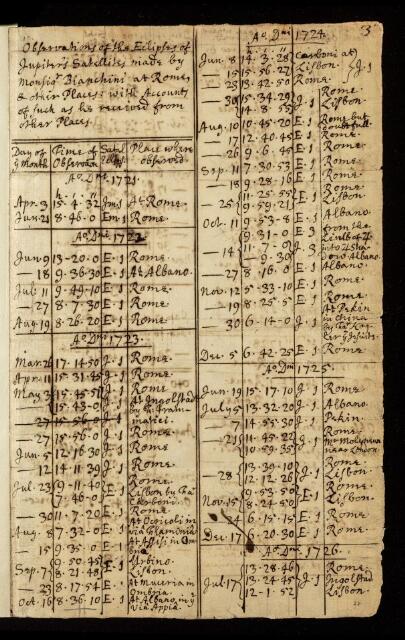 3
Observations of the Eclipses of
Jupiter's Satellites made by
Monsigr Bianchini at Rome,
& other Places: with Accounts
of such as he received from
other Places.
Day of
ye Month
Time of
Observation
Place where
observed.
Ao. Dni 1721.
Apr. 3 15.4.32 Im. 1 At Rome.
Jun. 21 8.46.0 Em. 1 Rome.
Ao. Dni 1722.
Jun. 9 13.20.0 E. 1 Rome.
— 18 9.36.30 E. 1 At Albano.
Jul. 11 9.49.10 E. 1 Rome.
— 27 8.7.30 E. 1 Rome.
Aug. 19 8.26.20 E. 1 Rome.
Ao. Dni 1723.
Mar. 26 17.14.50 J. 1 Rome.
Apr. 11 15.31.45 J. 1 Rome.
May 3 15.45.51 J. 1 Rome
15.43.0 At Ingolstad
by Gram-
matici.
27 15.56.0 J. 1
— 27 15.56.0 J. 1 Rome.
Jun. 5 12.16.30 J. 1 Rome.
— 12 14.11.39 J. 1 Rome.
Jul. 23 9.11.40 E. 1 Rome.
7.46.0 Lisbon by Fa.
Carboni.
— 30 11.7.20 E. 1 Rome.
Aug. 8 7.32.0 E. 1 At Ocricoli in
via Flaminia
— 15 9.35.0 E. 1 At Assisi in Om-
bria.
Sep. 7 9.50.45 E. 1 Urbino.
8.21.48 Lisbon.
— 23 8.17.54 E. 1 At Nuceria in
Ombria.
Oct. 16 8.36.10 E. 1 At Albano, in ye
via Appia.
Ao. Dni 1724.
Jun. 8 14.3.28 Carboni at
— 15 15.56.27 Lisbon. J. 1
— 23 13.42.50 Rome.
— 30 15.34.29 J. 1 Rome.
14.8.55 Lisbon.
Aug. 10 10.45.20 E. 1 Rome but
doubtfull.
— 17 12.40.45 E. 1 Rome.
— 26 9.6.45 E. 1 Rome.
Sep. 11 7.30.53 E. 1 Rome.
— 18 9.28.16 E. 1 Rome.
— 25 11.25.55 E. 1 Rome.
9.59.21 Lisbon.
Oct. 11 9.53.8 E. 1 Albano
9.31.0 E. 3 from the
Limb of ♃
— 14 11.7.0 J. 3 into ♃ sha-
9.30 dow Albano.
— 27 8.16.0 E. 1 Albano.
Nov. 12 5.33.10 E. 1 Rome.
— 19 8.25.5 E. 1 Rome.
— 30 6.14.0 J. 1 At Pekin
in China
by Fa. Keg-
ler ye Jesuite.
Dec. 5 6.42.25 E. 1 Rome.
Ao. Dni 1725.
Jun. 19 15.17.10 J. 1 Rome.
July 5 13.32.20 J. 1 Albano.
— 7 14.55.30 J. 1 Pekin.
— 21 11.45.22 J. 1 Rome.
10.59.35 Mr
near
— 28 13.39.10 J. 1 Rome.
12.12.26 Lisbon.
Nov. 15 9.53.50 E. 1 Rome.
8.24.50 Lisbon.
— 24 6.15.15 E. 1 Rome.
Dec. 17 6.20.30 E. 1 Rome.
Ao. Dni 1726.
Jul. 17 13.28.46 J. 1 Rome.
13.24.45 Ingolstad
12.1.52 Lisbon.